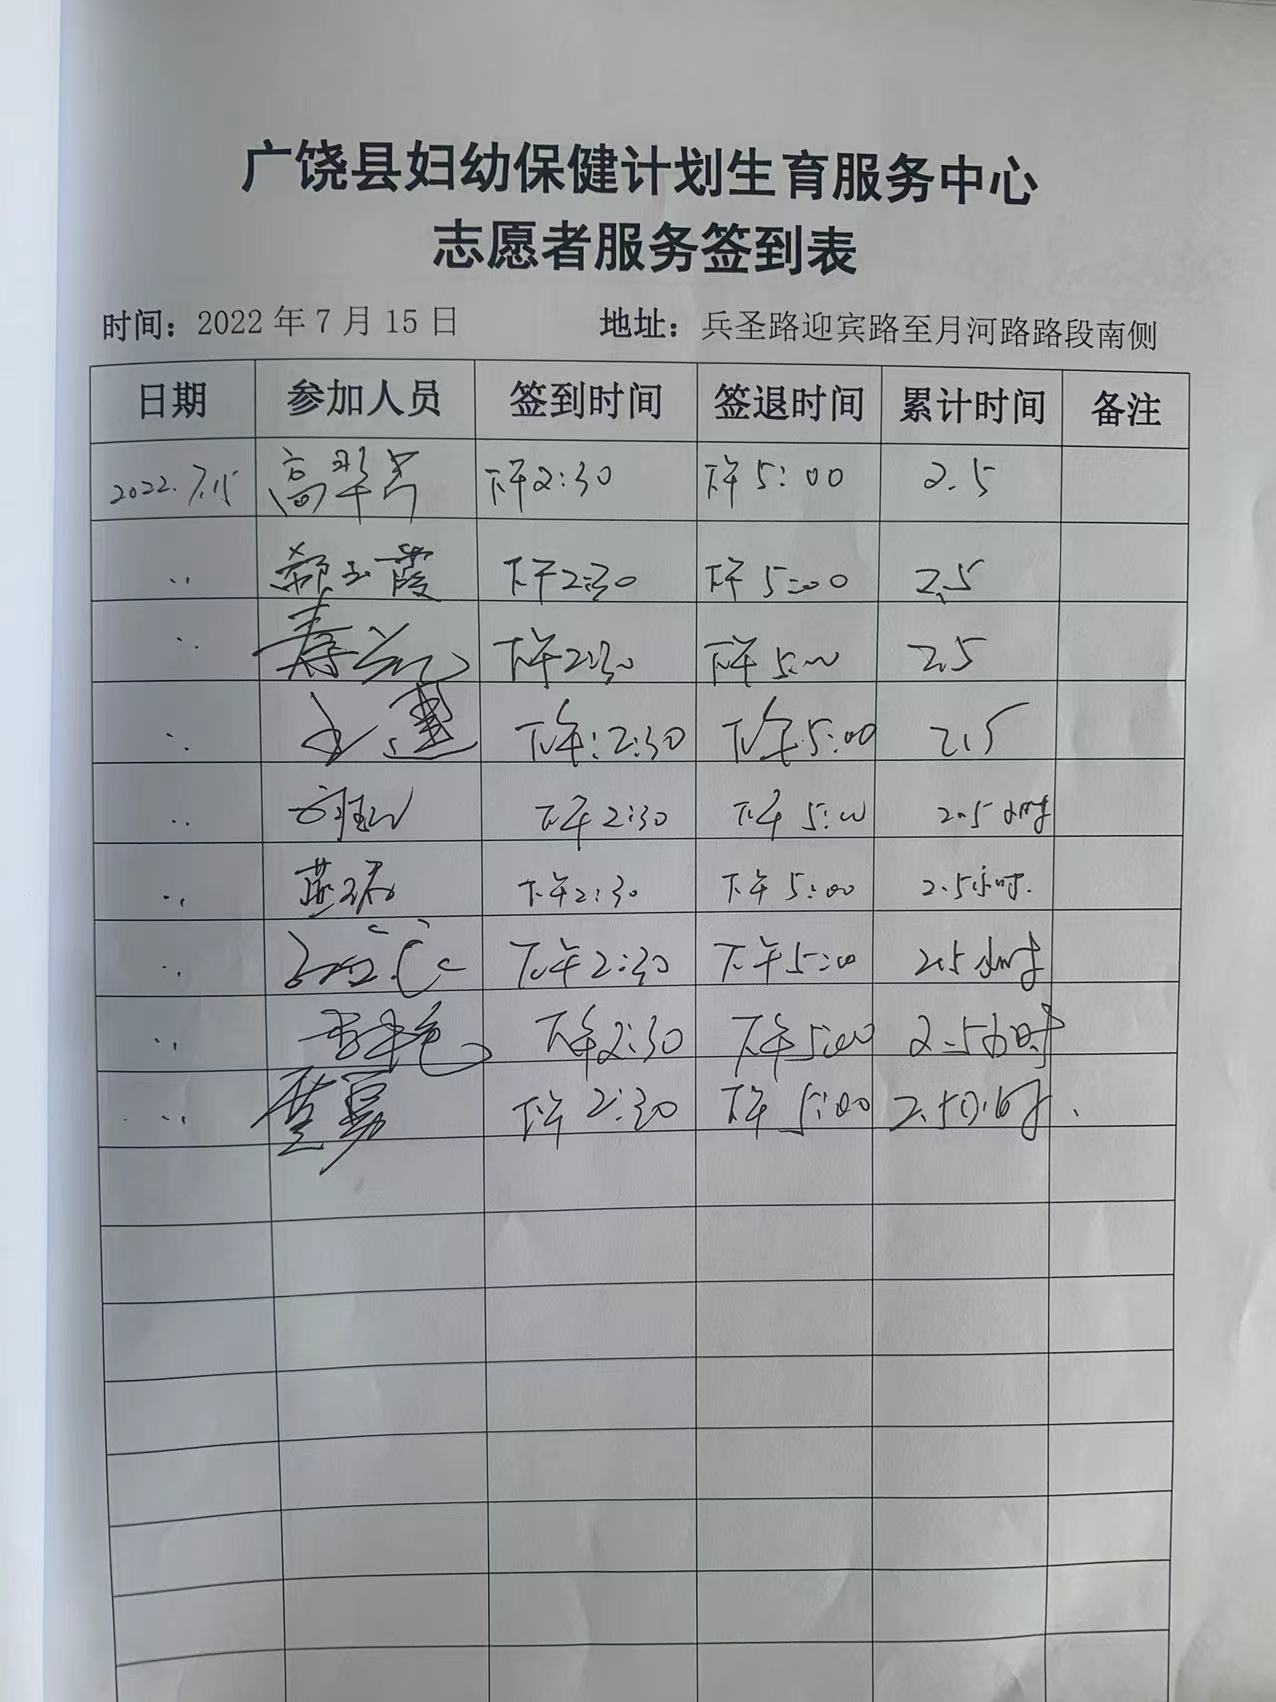 广饶县妇幼保健计划生育服务中心
志愿者服务签到表
时间：2022年7月15日 地址：兵圣路迎宾路至月河路路段南侧
日期 参加人员 签到时间 签退时间 累计时间 备注
2022.7.15 下午2:30 下午5:00 2.5
郝玉霞 下午2:30 下午5:00 2.5
下午2:30 下午5:00 2.5
下午:2:30 下午5:00 2.5
下午2:30 下午5:00 2.5小时
下午2:30 下午5:00 2.5小时.
下午2:30 下午5:00 2.5小时
下午2:30 下午5:00 2.5小时
下午2:30 下午5:00 2.5小时.